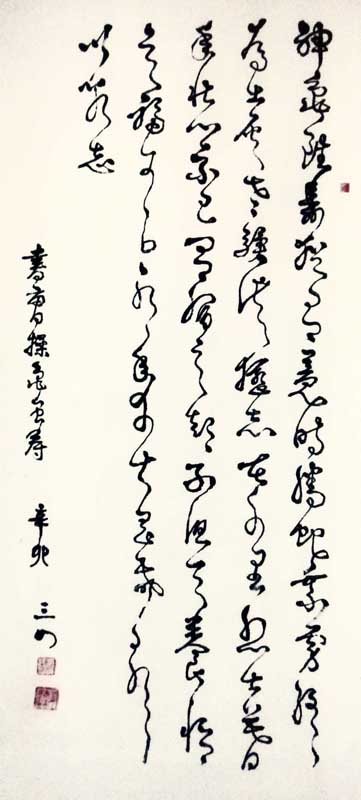 神龜雖壽猶有竟時騰蛇乘霧終
為土灰老驥伏櫪志在千里烈士暮
年壯心不已盈縮之期不但在天養怡
之福可得永年幸甚至哉歌
以詠志
書曹操龜虽寿 辛卯 三